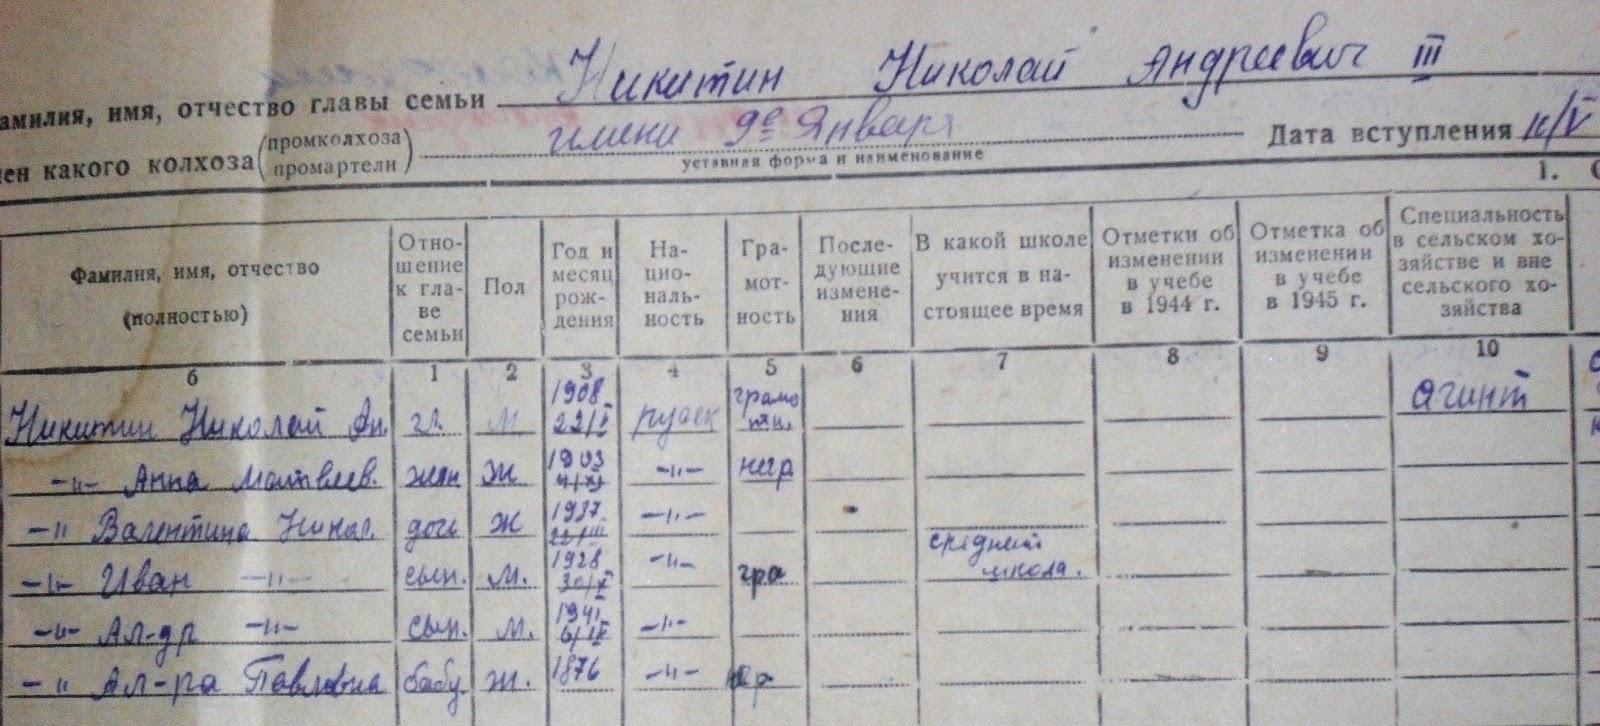 амилия, имя, отчество главы семьи Никитин Николай Андреевич III
ен какого колхоза (промколхоза промартели) имени 9е Января Дата вступления
уставная форма и наименование
1. С
Фамилия, имя, отчество (полностью)
Отно-
шение
к гла-
ве
семьи
Пол
Год и
месяц
рож-
дения
На-
цио-
наль-
ность
Гра-
мот-
ность
После-
дующие
измене-
ния
В какой школе
учится в на-
стоящее время
Отметки об
изменении
в учебе
в 1944 г.
Отметка об
изменении
в учебе
в 1945 г.
Специальность
в сельском хо-
зяйстве и вне
сельского хо-
зяйства
б 1 2 3 4 5 6 7 8 9 10
Никитин Николай Ан. гл. м 1908 русск грамотн.
-"- Анна Матвеев. жен ж 1903 -"- негр
-" Валентина Никол. дочь ж 1937 -"-
-"- Иван -"- сын. м. 1928 -"- гра средний школа.
-"- Ал-др -"- сын. м. 1941 -"-
-" Ал-ра Павловна бабу. ж. 1876 -"- негр